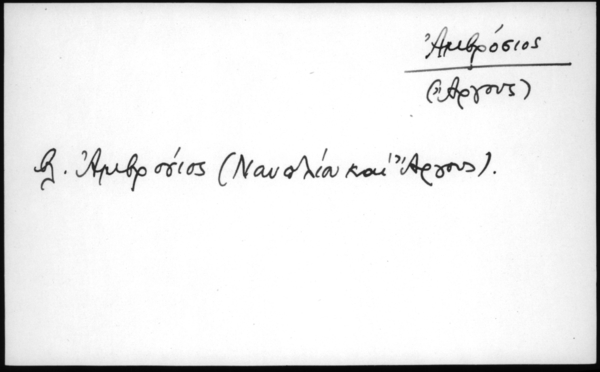 Ἀμβρόσιος
(Ἄργους)
βλ. Ἀμβρόσιος (Ναυπλίου καὶ Ἄργους).